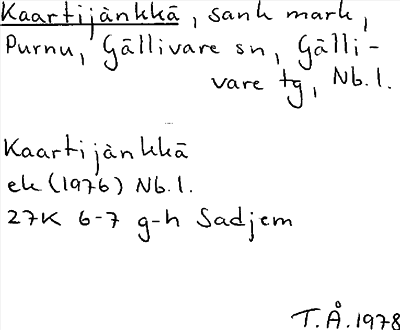 Kaartijänkkä, sank mark,
Purnu, Gällivare sn, Gälli-
vare tg, Nb.l.
Kaartijänkkä
ek (1976) Nb.l.
27K 6-7 g-h Sadjem
T.Å.1978